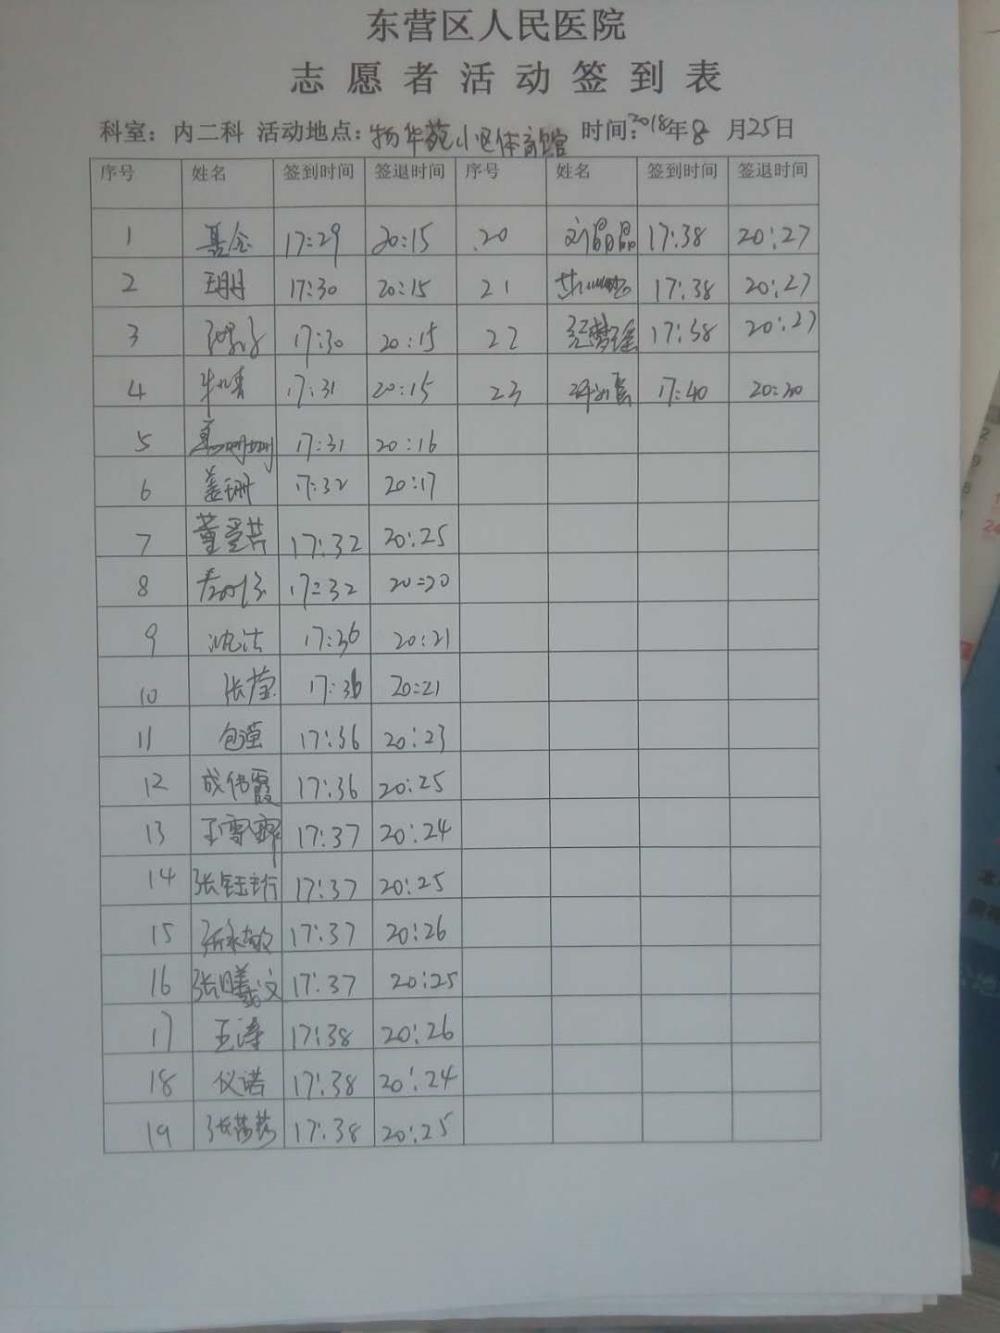 东营区人民医院
志愿者活动签到表
科室：内二科 活动地点：物华苑小区体育馆 时间：2018年8月25日
序号 姓名 签到时间 签退时间 序号 姓名 签到时间 签退时间
1 17:29 20:15 20 刘晶晶 17:38 20:27
2 17:30 20:15 21 17:38 20:27
3 17:30 20:15 22 梦瑶 17:38 20:27
4 17:31 20:15 23 17:40 20:30
5 17:31 20:16
6 姜珊 17:32 20:17
7 董爱芸 17:32 20:25
8 17:32 20:20
9 沈洁 17:36 20:21
10 张莹 17:36 20:21
11 包谨 17:36 20:23
12 成伟霞 17:36 20:25
13 王雪 17:37 20:24
14 张钰 17:37 20:25
15 17:37 20:26
16 张曦文 17:37 20:25
17 王涛 17:38 20:26
18 仪诺 17:38 20:24
19 张莎莎 17:38 20:25